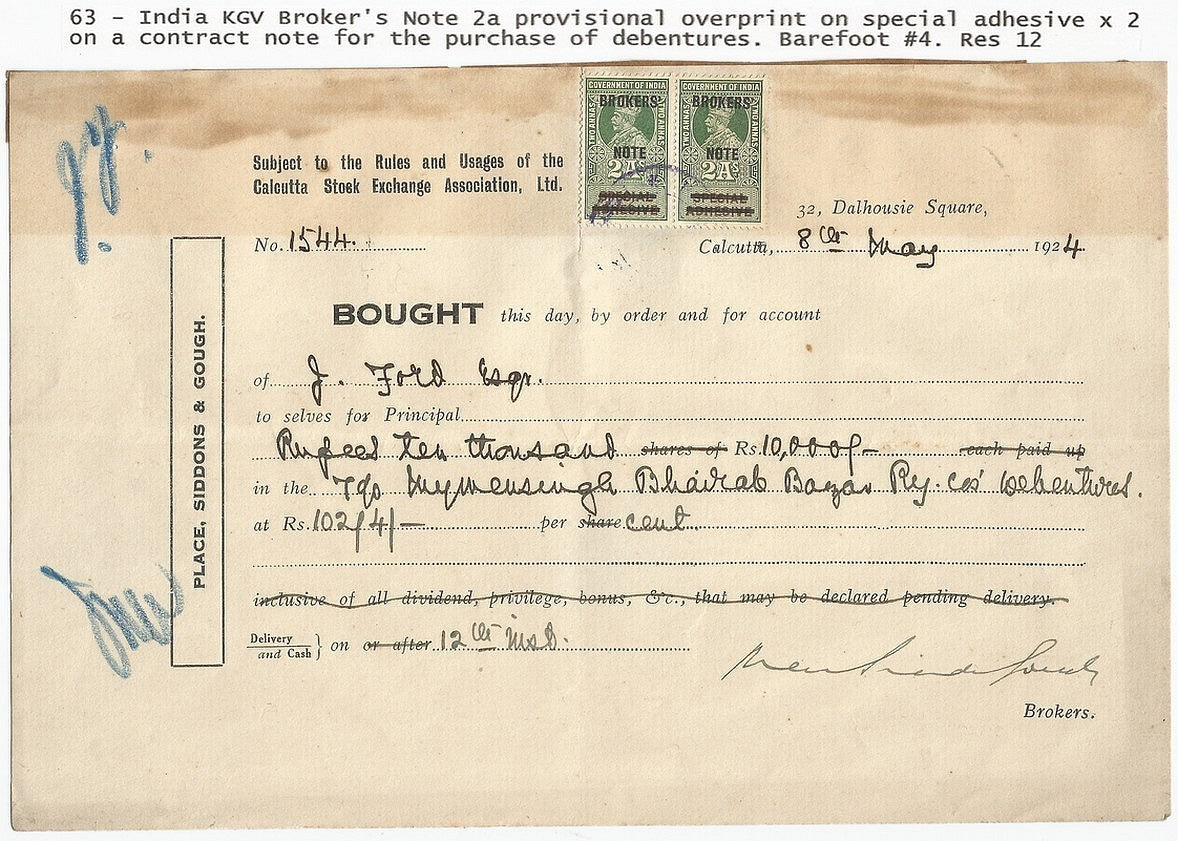 63 - India KGV Broker's Note 2a provisional overprint on special adhesive x 2
on a contract note for the purchase of debentures. Barefoot #4. Res 12
GOVERNMENT OF INDIA GOVERNMENT OF INDIA
BROKERS' BROKERS'
TWO ANNAS TWO ANNAS TWO ANNAS TWO ANNAS
NOTE NOTE
2As 2As
SPECIAL ADHESIVE SPECIAL ADHESIVE
Subject to the Rules and Usages of the
Calcutta Stock Exchange Association, Ltd.
32, Dalhousie Square,
No. 1544.
Calcutta, 8th May 1924
PLACE, SIDDONS & GOUGH.
BOUGHT this day, by order and for account
of J. Ford Esqr.
to selves for Principal
Rupees ten thousand shares of Rs. 10,000/- each paid up
in the Mymensingh Bhairab Bazar Ry. Cos' Debentures.
at Rs. 102/4/- per share cent
inclusive of all dividend, privilege, bonus, &c., that may be declared pending delivery.
Delivery and Cash } on or after 12th inst.
Brokers.